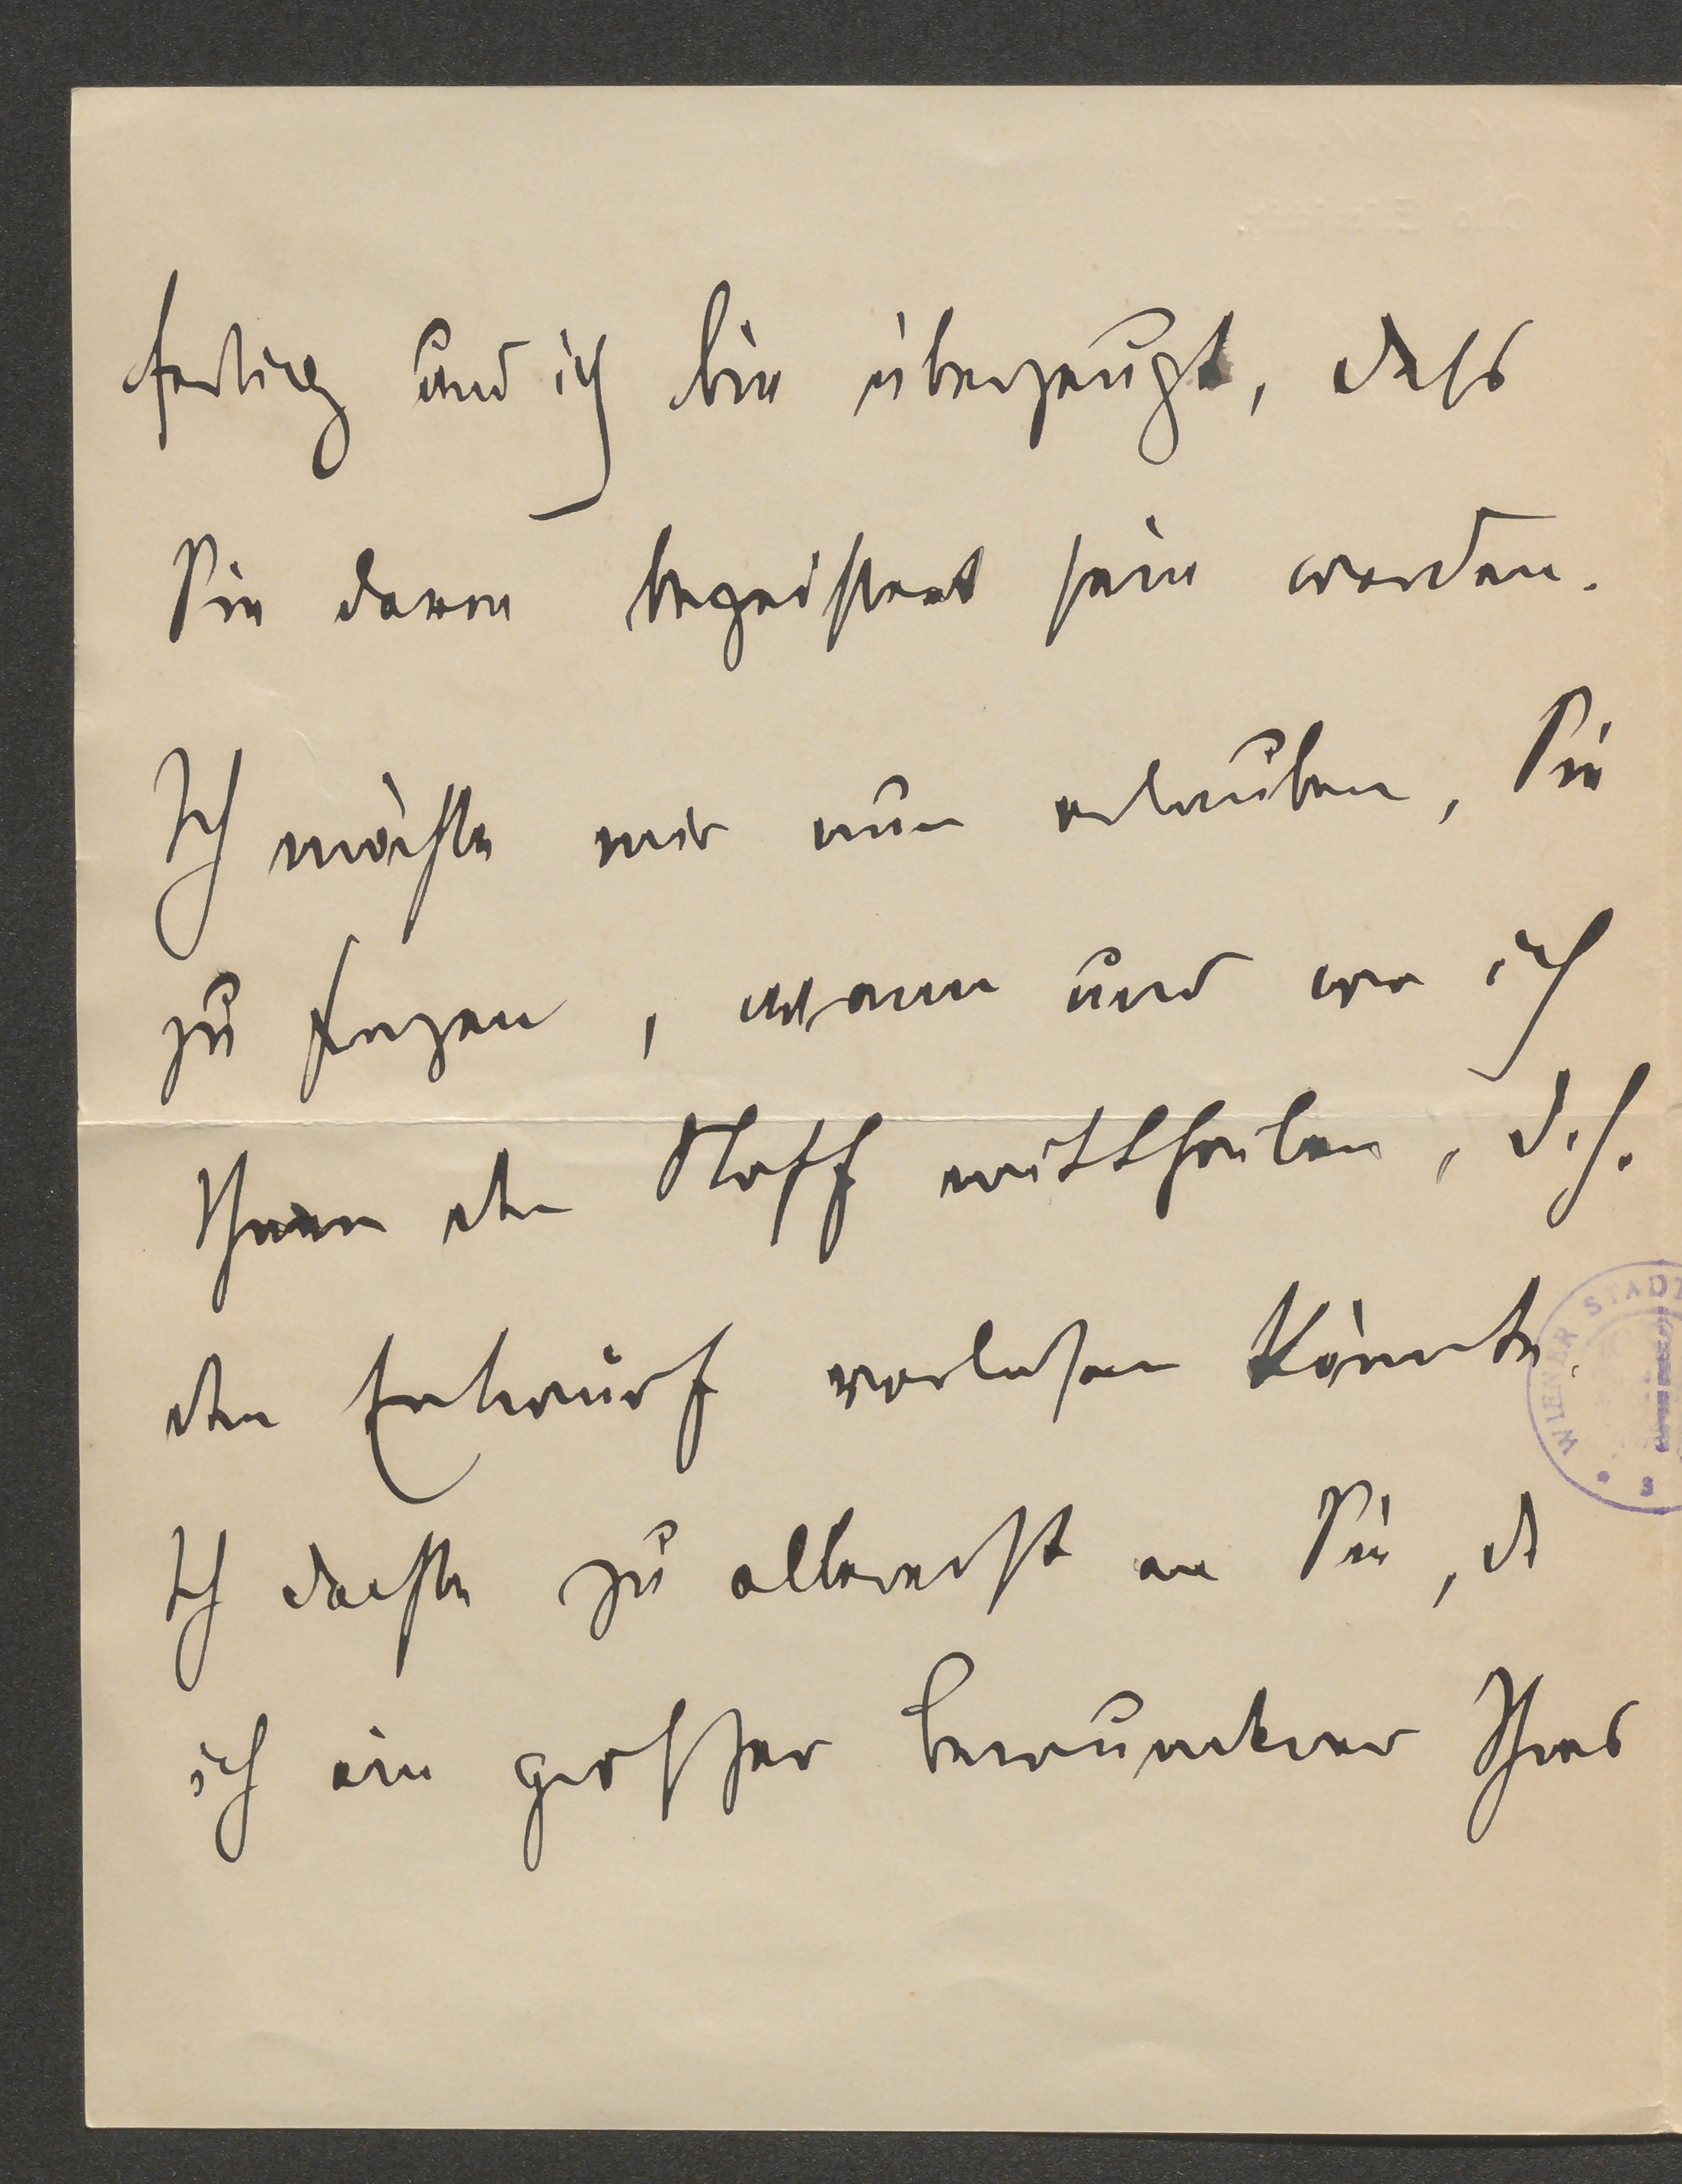 fertig und ich bin überzeugt, dass
Sie davon begeistert sein werden.
Ich möchte mir nun erlauben, Sie
zu fragen, wann und wo ich
Ihnen den Stoff mittheilen, d.h.
den Entwurf vorlesen könnte.
Ich dachte zu allererst an Sie, da
ich ein grosser Bewunderer Ihres
WIENER STADT